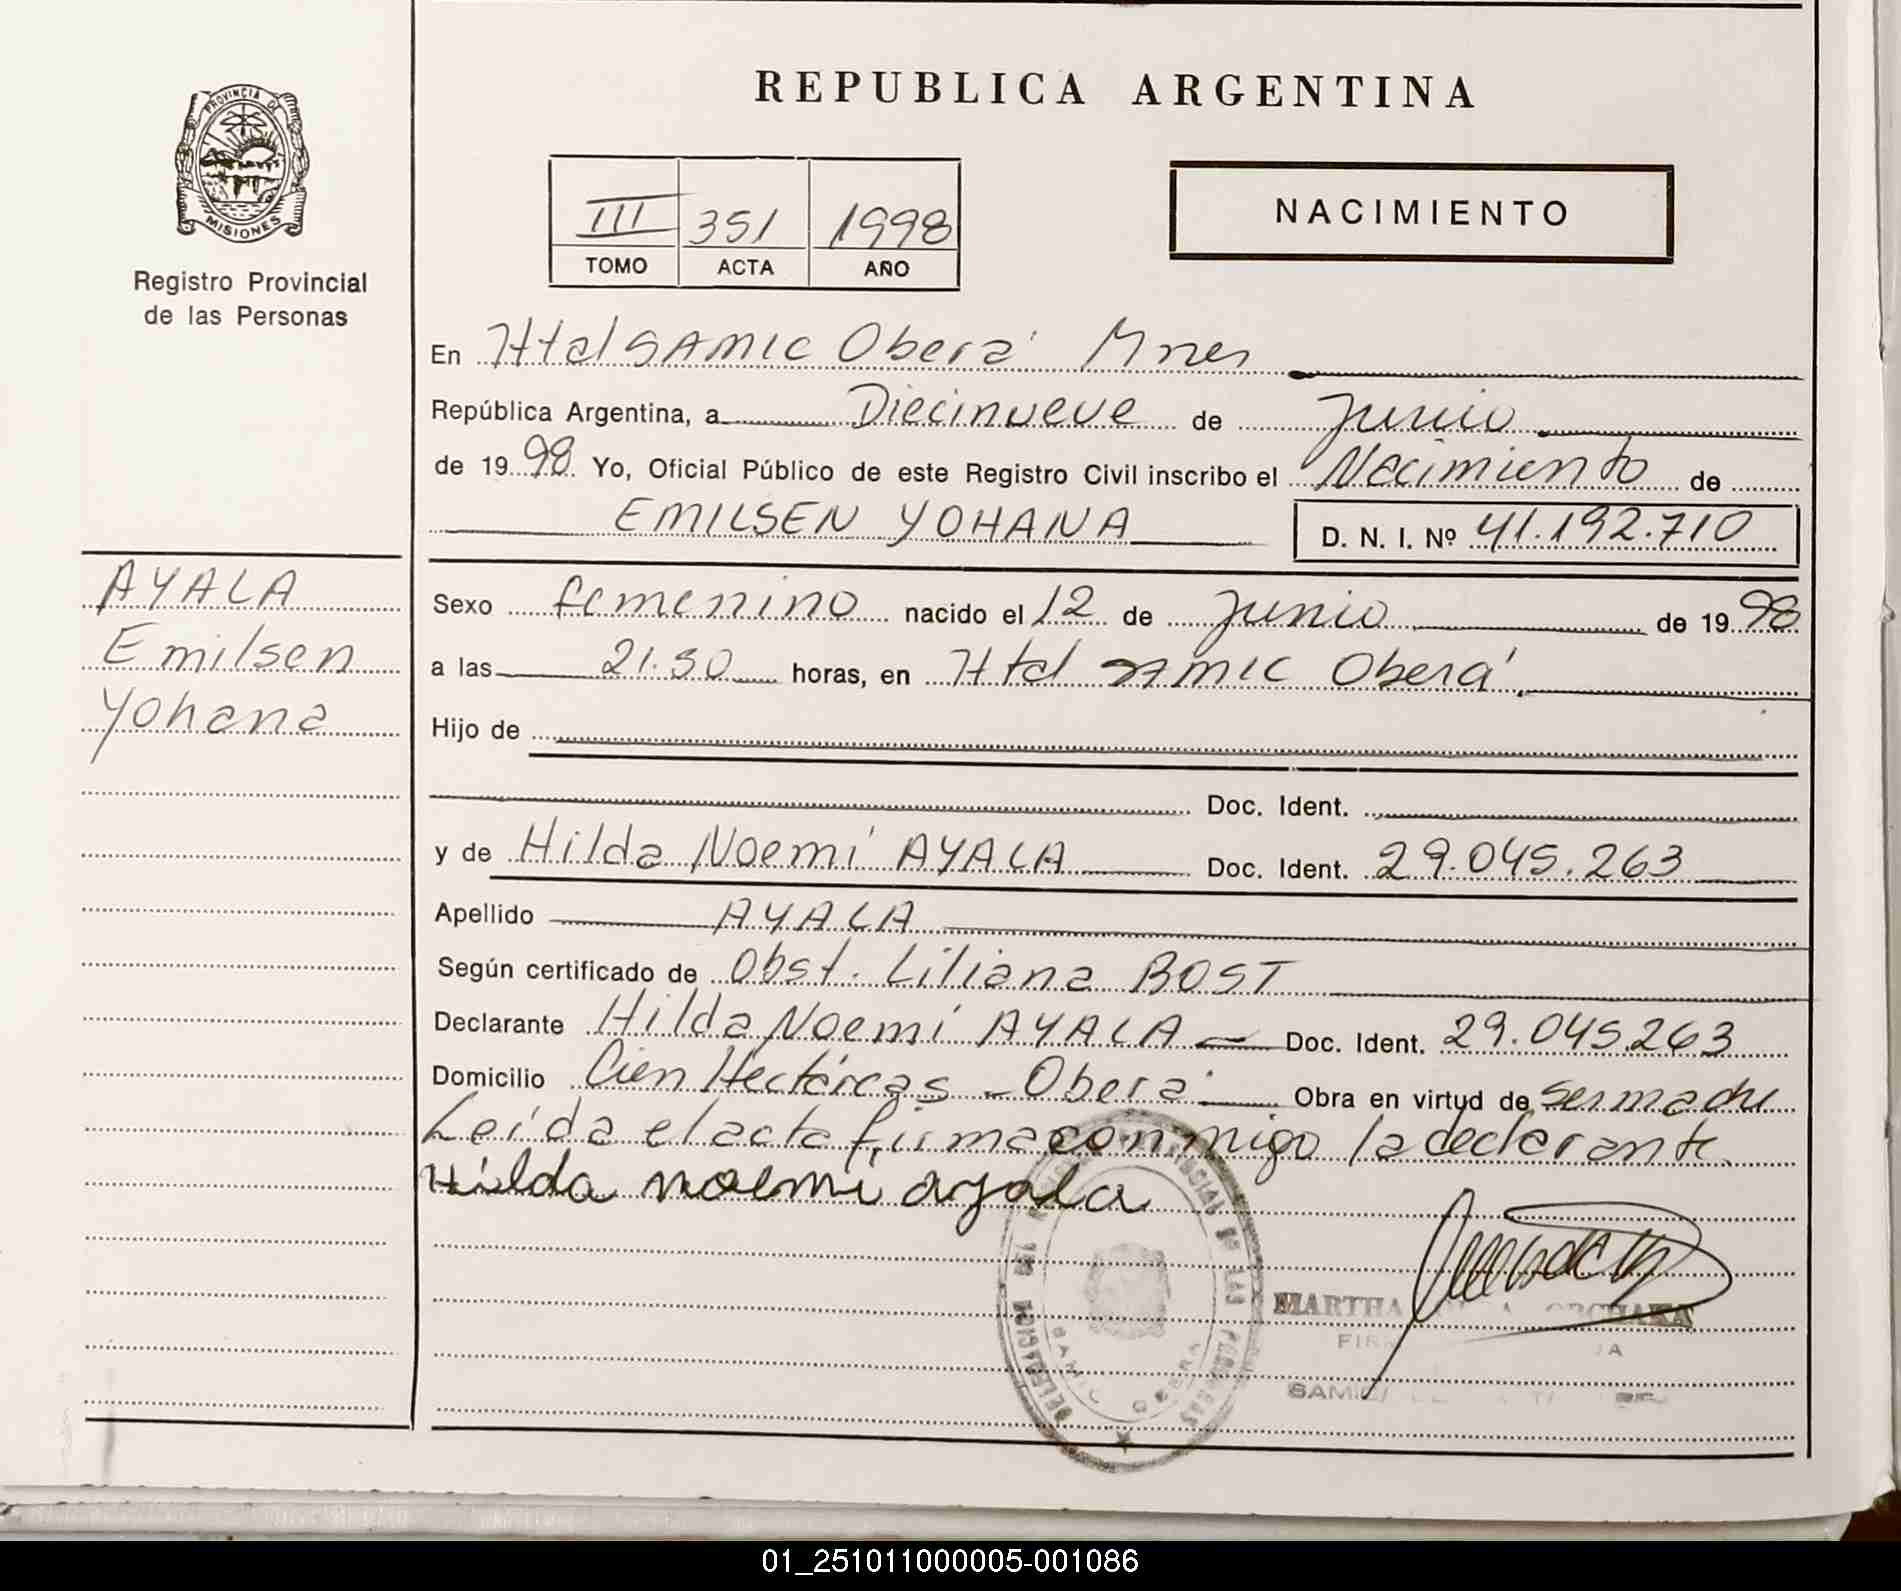 PROVINCIA DE
MISIONES
Registro Provincial
de las Personas
AYALA
Emilsen
Yohana
REPUBLICA ARGENTINA
III 351 1998
TOMO ACTA AÑO
NACIMIENTO
En Htal SAMIC Oberá Mnes
República Argentina, a Diecinueve de Junio
de 1998 Yo, Oficial Público de este Registro Civil inscribo el Nacimiento de
EMILSEN YOHANA D. N. I. Nº 41.192.710
Sexo femenino nacido el 12 de Junio de 1998
a las 21.30 horas, en Htal SAMIC Oberá
Hijo de
Doc. Ident.
y de Hilda Noemí AYALA Doc. Ident. 29.045.263
Apellido AYALA
Según certificado de Obst. Liliana BOST
Declarante Hilda Noemí AYALA Doc. Ident. 29.045.263
Domicilio Cien Hectáreas - Oberá Obra en virtud de ser madre
Leída el acta firma conmigo la declarante
Hilda noemi ayala
MARTHA
SAMIC
DELEGACION
SAMIC OBERA
01_251011000005-001086